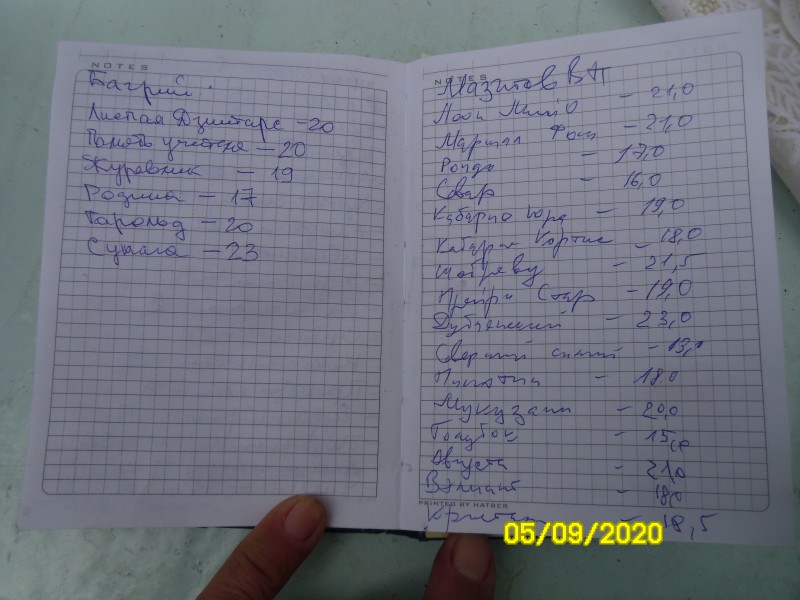 NOTES
Багрий
Лиепая Дзинтарс - 20
Память учителя - 20
Журавник - 19
Родина - 17
Гарольд - 20
Супага - 23
NOTES
Мазитов ВАП
- 21,0
Маршал Фош - 21,0
Рондо - 17,0
Свар - 16,0
Каберне Юра - 19,0
Каберне Кортис - 18,0
- 21,5
Прейри Стар - 19,0
- 23,0
Северный синий - 13,0
- 18,0
Мукузани - 20,0
Голубок - 15,0
Августа - 21,0
Вэлиант - 18,0
PRINTED BY HATBER
- 18,5
05/09/2020